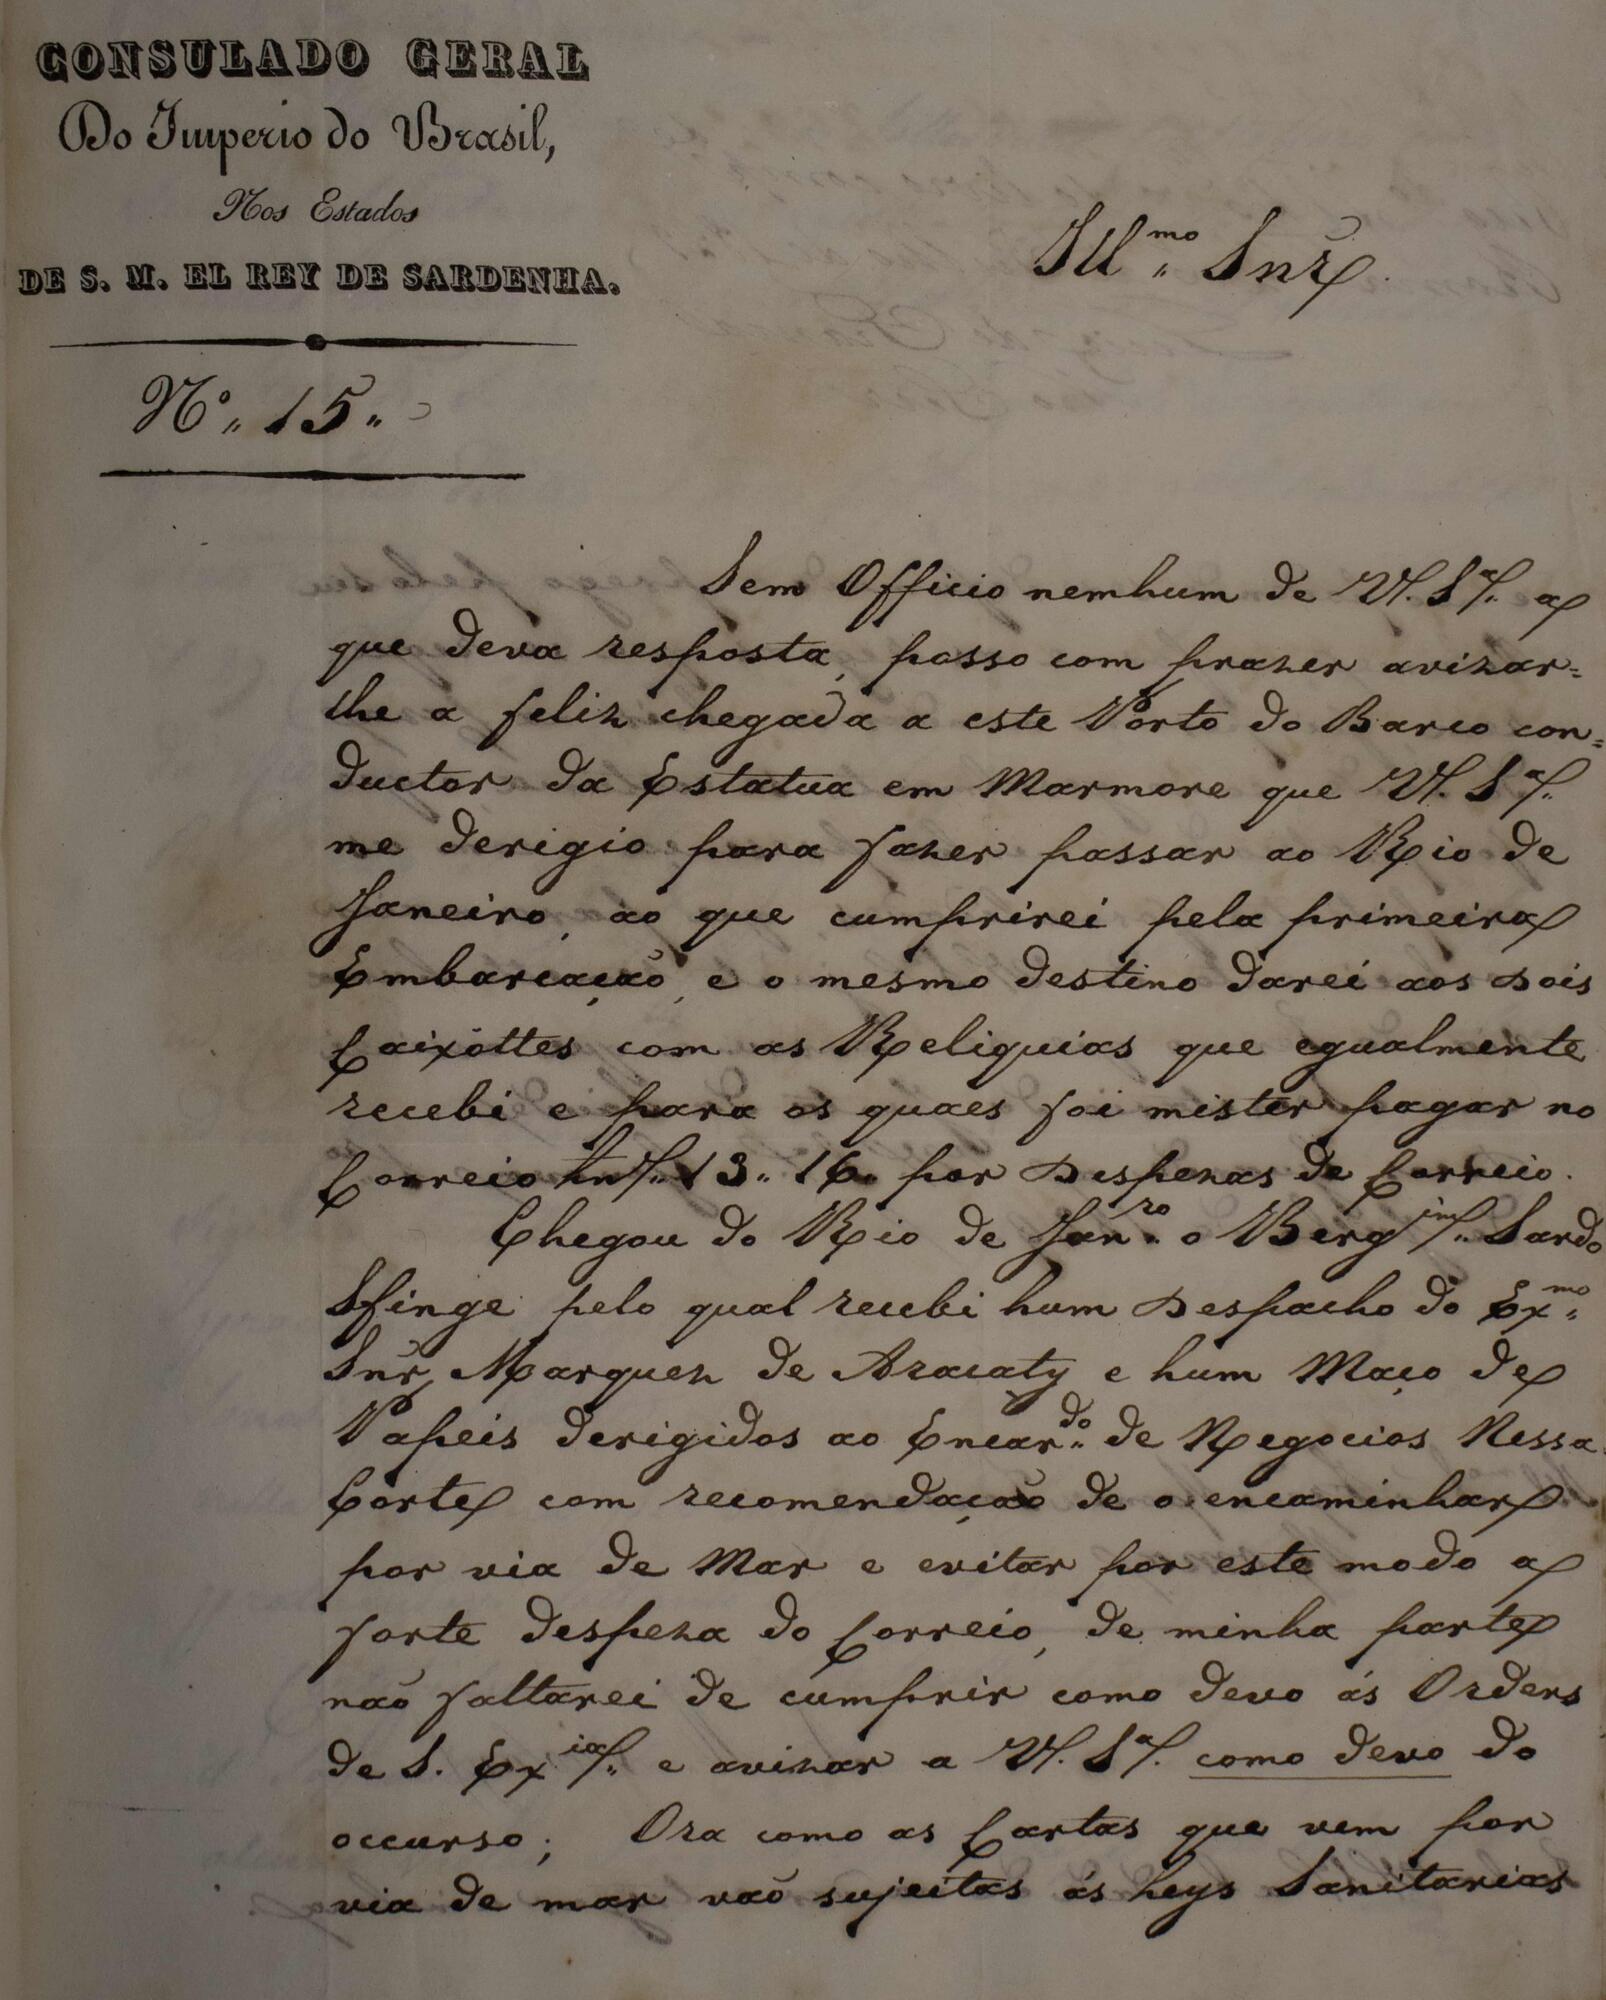 CONSULADO GERAL
Do Imperio do Brasil,
Nos Estados
DE S. M. EL REY DE SARDENHA.
Nº. 15.
Ill.mo Snr
Sem Officio nemhum de V. Sª. a
que deva resposta, passo com prazer avizar=
lhe a feliz chegada a este Porto do Barco con=
ductor da Estatua em Marmore que V. Sª.
me derigio para fazer passar ao Rio de
Janeiro, ao que cumprirei pela primeira
Embarcação, e o mesmo destino darei aos dois
Caixottes com as Reliquias que egualmente
recebi e para os quaes foi mister pagar no
Correio 13. 16. por Despezas de Correio.
Chegou do Rio de Jan.ro o Berg.im Sardo
Sfinge pelo qual recebi hum Despacho do Ex.mo
Snr Marquez de Aracaty e hum Maço de
Papeis derigidos ao Encar.do de Negocios Nessa
Corte com recomendação de o encaminhar
por via de Mar e evitar por este modo a
forte despeza do Correio, de minha parte
não faltarei de cumprir como devo ás Ordens
de S. Ex.ia e avizar a V. Sª. como devo do
occurso; Ora como as Cartas que vem por
via de mar vaõ sujeitas ás Leys Sanitarias